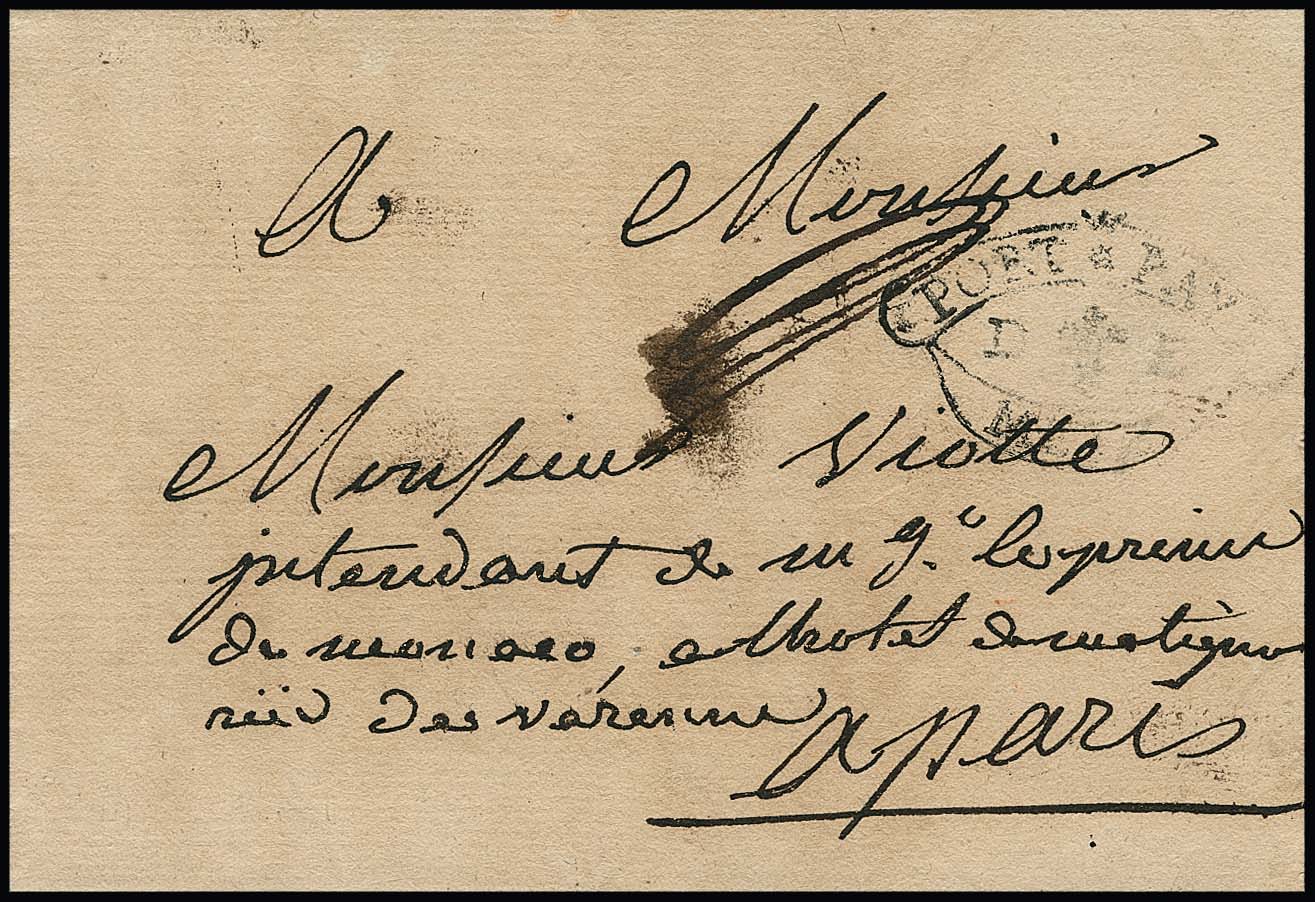 A Monsieur
PORT PAY
D E
Monsieur Viotte
intendant de mgr le prince
de monaco, a lhotel de matignon
rüe des varenne
a paris